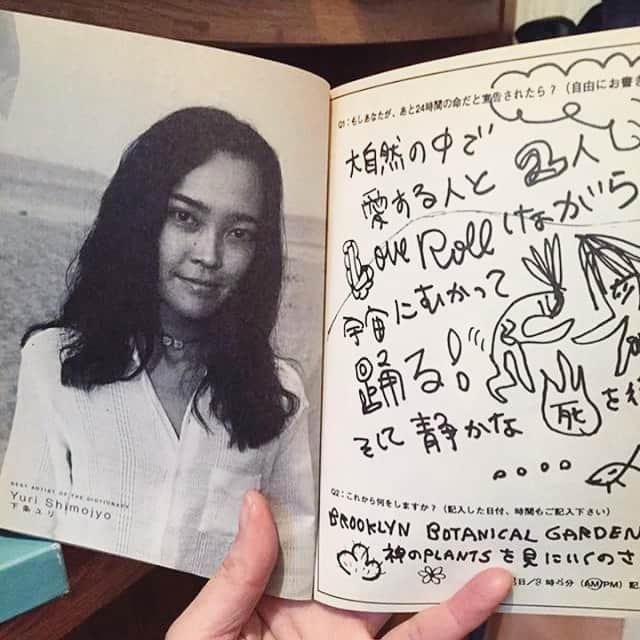 BEST ARTIST OF THE DICTIONARY
Yuri Shimojyo
下条ユリ
Q1:もしあなたが、あと24時間の命だと宣告されたら?(自由にお書き
大自然の中で
愛する人と 2人し
Love Roll しながら
宇宙にむかって
踊る!
そして 静かな 死 を
Q2:これから何をしますか?(記入した日付、時間もご記入下さい)
BROOKLYN BOTANICAL GARDEN
神のPLANTSを見にいくのさ
日/8時 分(AM/PM)記